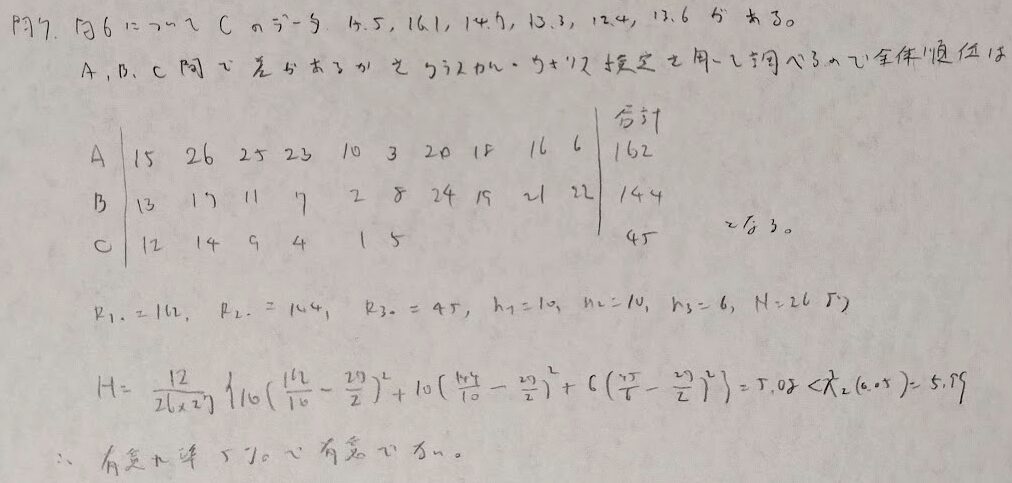 問7. 問6について C のデータ 15.5, 16.1, 14.7, 13.3, 12.4, 13.6 がある。
A, B, C 間で差があるかをクラスカル・ウォリス検定を用いて調べるので全体順位は
合計
A 15 26 25 23 10 3 20 18 16 6 162
B 13 17 11 7 2 8 24 19 21 22 144
C 12 14 9 4 1 5 45 となる。
R1. = 162, R2. = 144, R3. = 45, n1=10, n2=10, n3=6, N=26 より
H = 12/(26×27) {10(162/10 − 27/2)² + 10(144/10 − 27/2)² + 6(45/6 − 27/2)²} = 5.08 < χ²₂(0.05) = 5.99
∴ 有意水準 5% で有意でない。